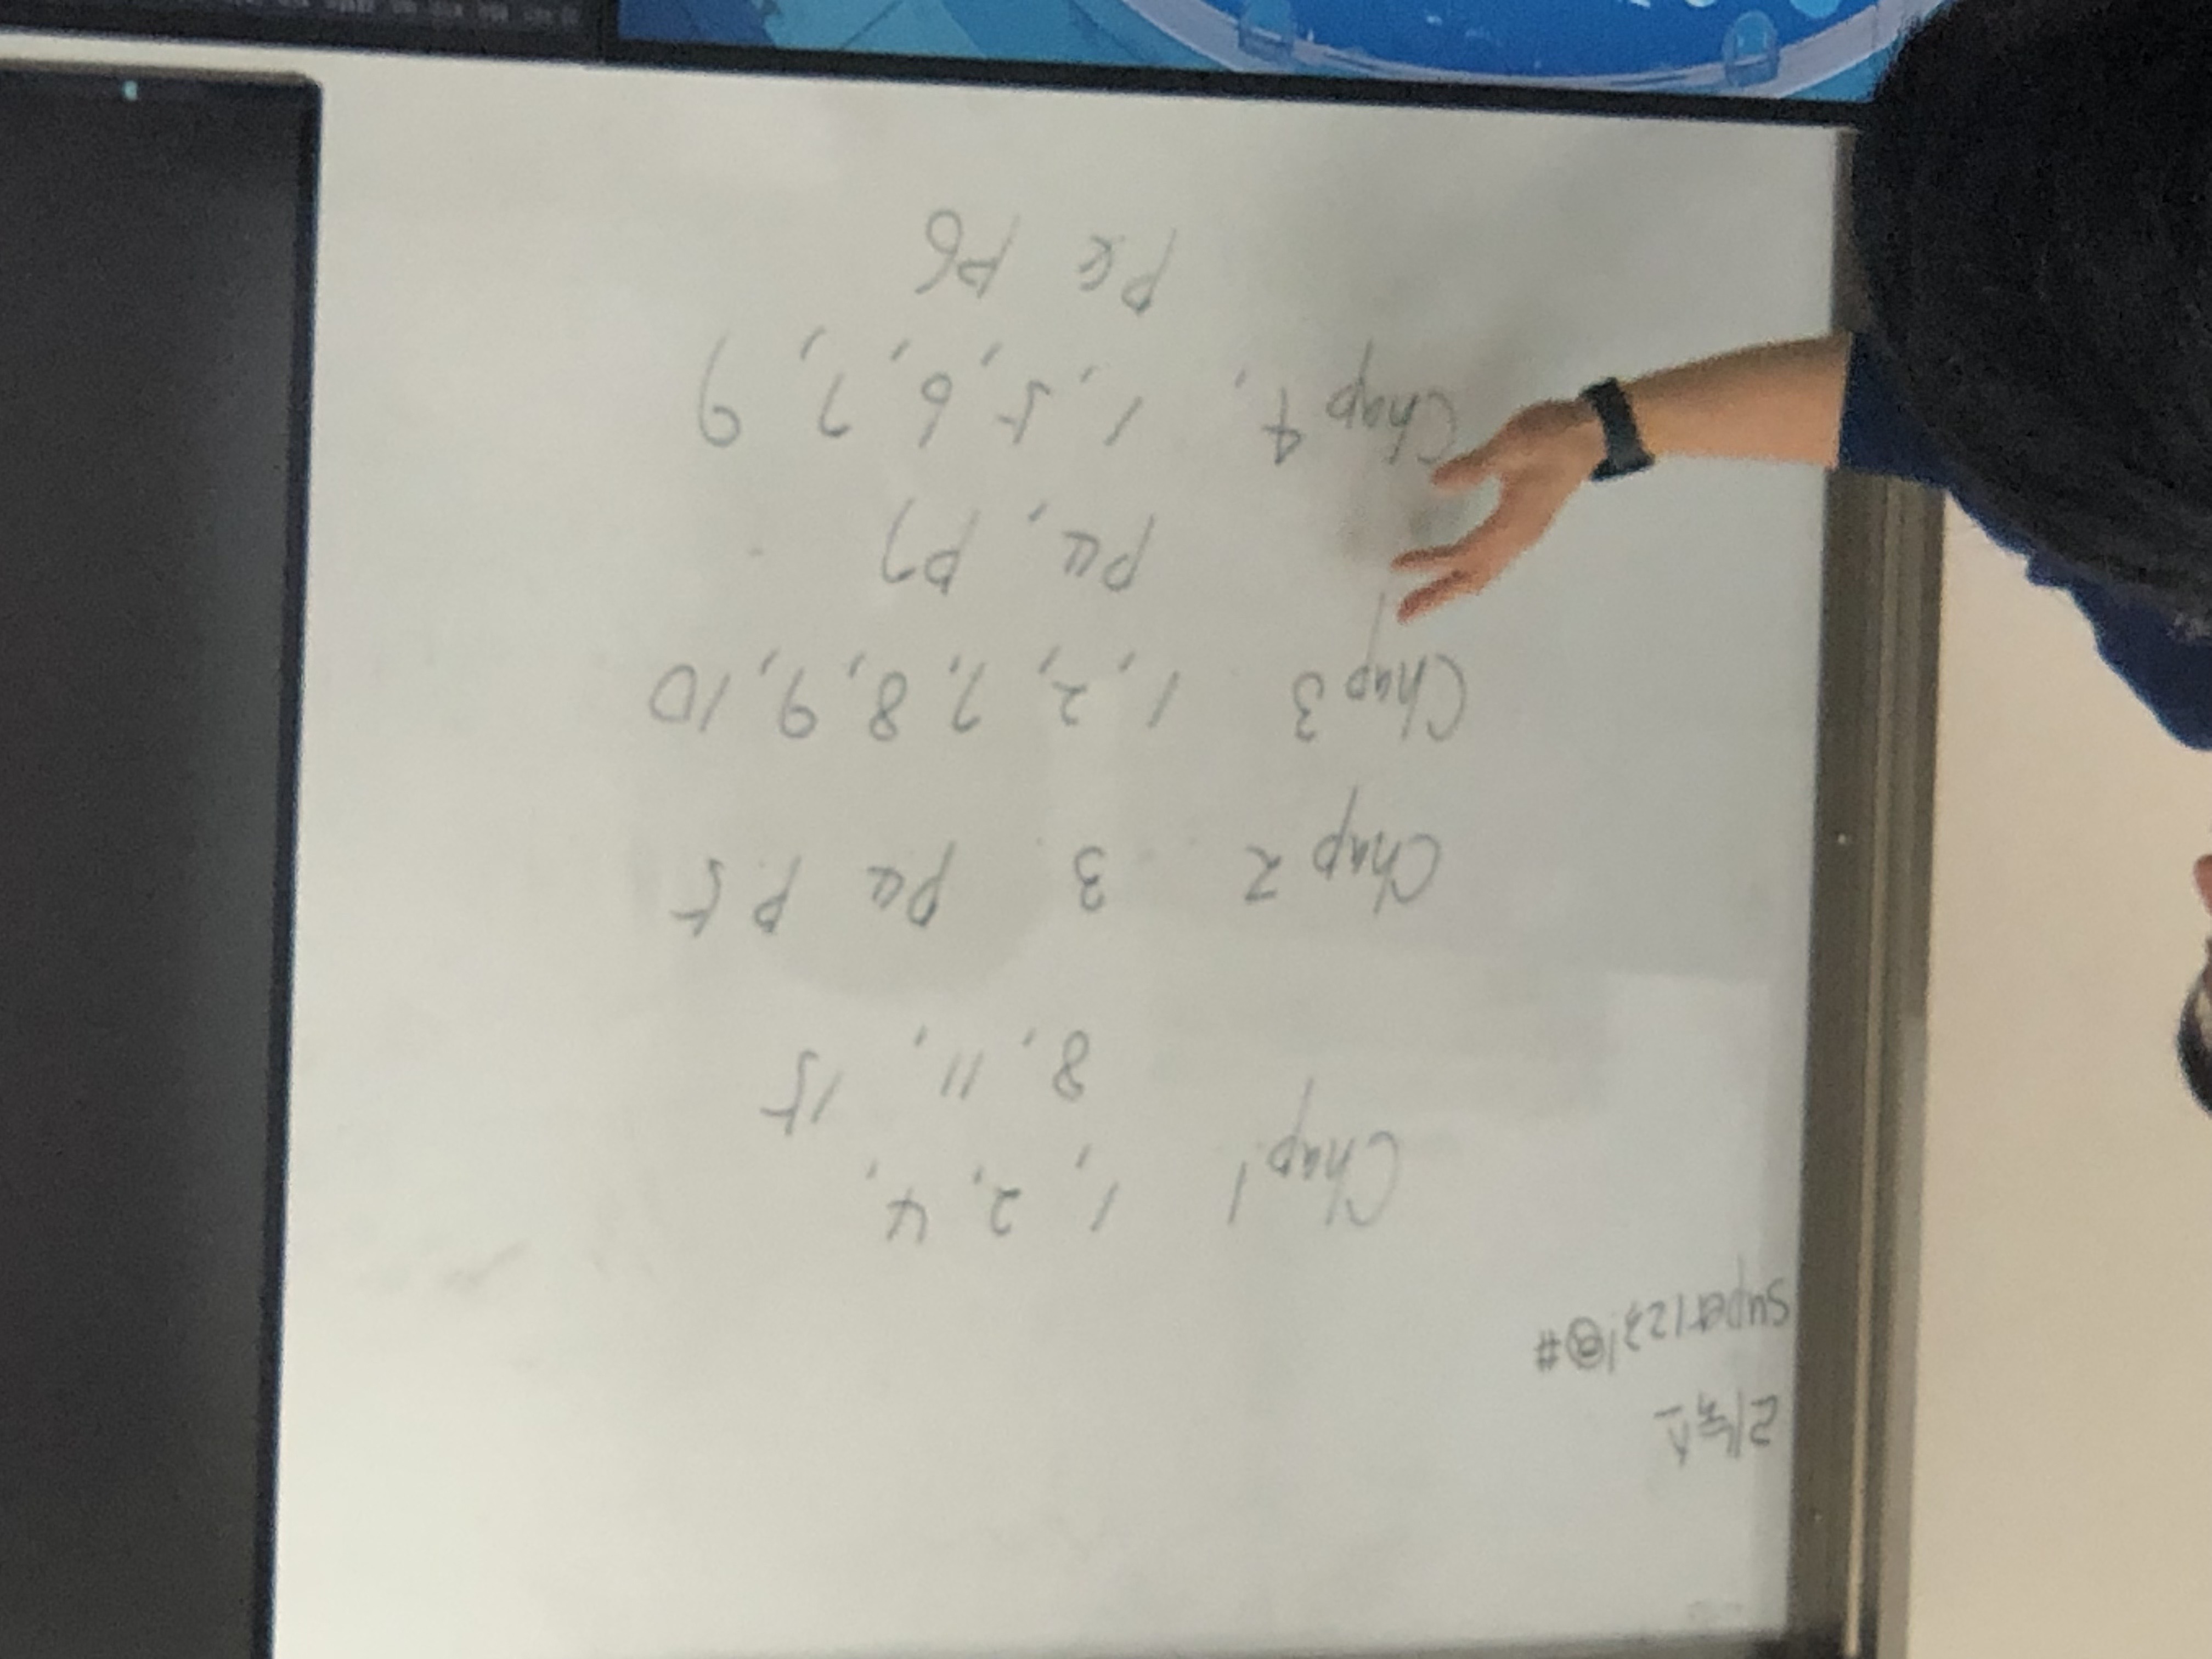 리눅스
super123!@#
Chap 1 1, 2, 4,
8, 11, 15
Chap 2 3 P4 P.5
Chap 3 1, 2, 7, 8, 9, 10
P4, P7
Chap 4, 1, 5, 6, 7, 9
P6